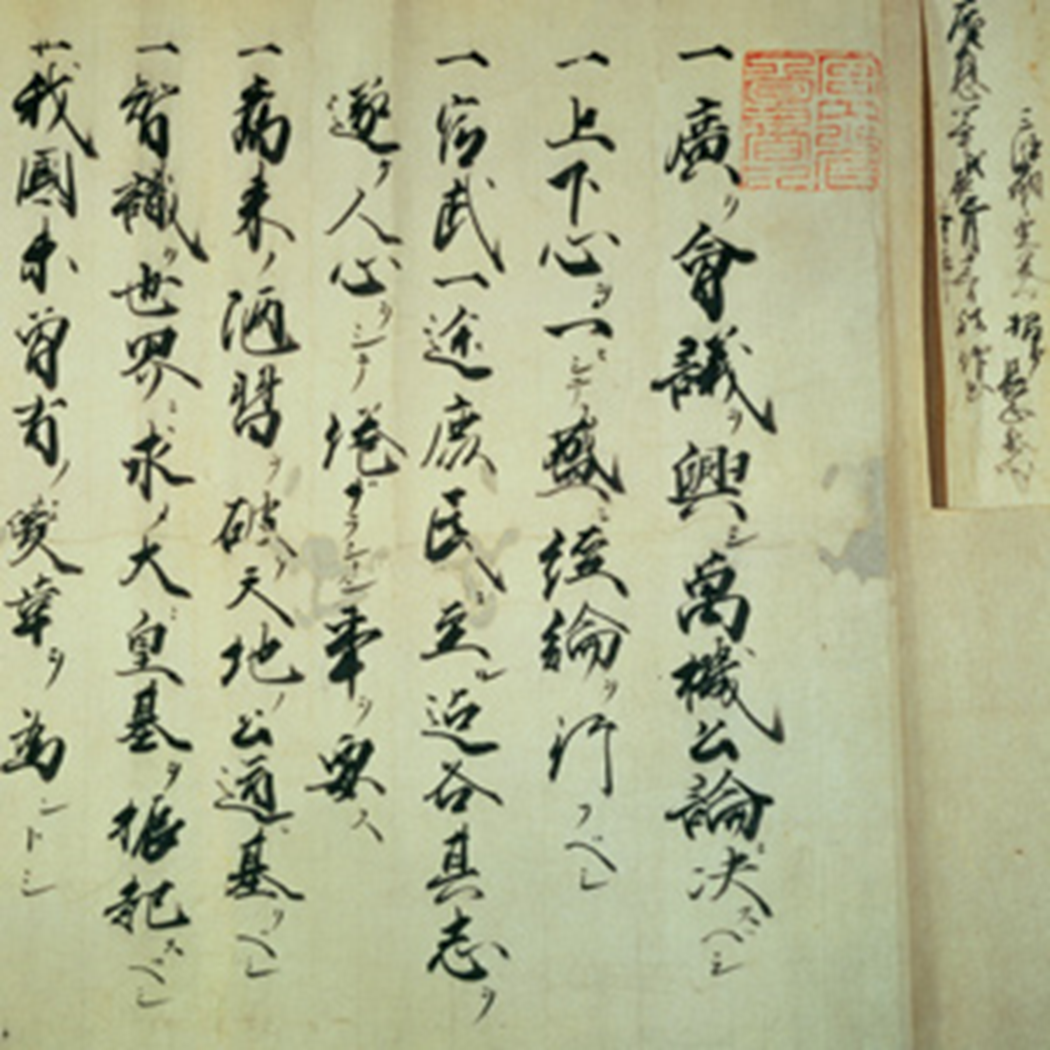 一廣ク會議ヲ興シ萬機公論ニ決スベシ
一上下心ヲ一ニシテ盛ニ經綸ヲ行フベシ
一官武一途庶民ニ至ル迄各其志ヲ
遂ケ人心ヲシテ倦ザラシムルヿヲ要ス
一舊來ノ陋習ヲ破リ天地ノ公道ニ基クベシ
一智識ヲ世界ニ求メ大ニ皇基ヲ振起スベシ
一我國未曾有ノ變革ヲ為ントシ